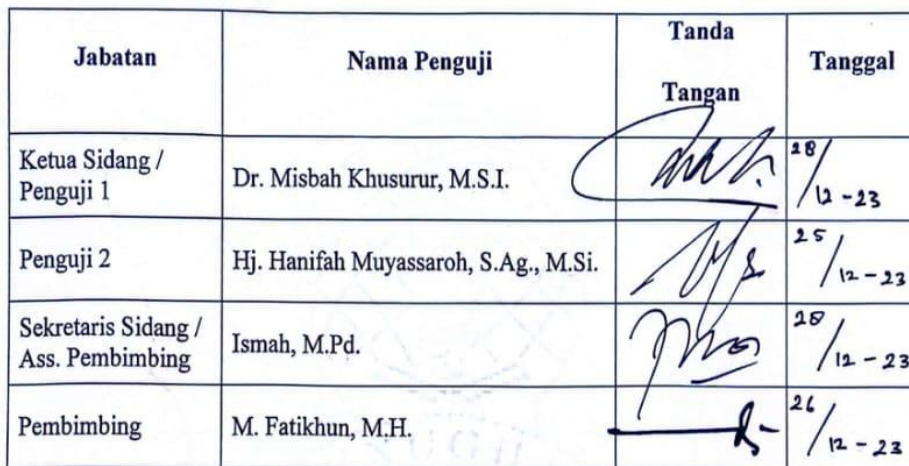 Jabatan
Nama Penguji
Tanda
Tangan
Tanggal
Ketua Sidang /
Penguji 1
Dr. Misbah Khusurur, M.S.I.
28/12-23
Penguji 2
Hj. Hanifah Muyassaroh, S.Ag., M.Si.
25/12-23
Sekretaris Sidang /
Ass. Pembimbing
Ismah, M.Pd.
28/12-23
Pembimbing
M. Fatikhun, M.H.
26/12-23